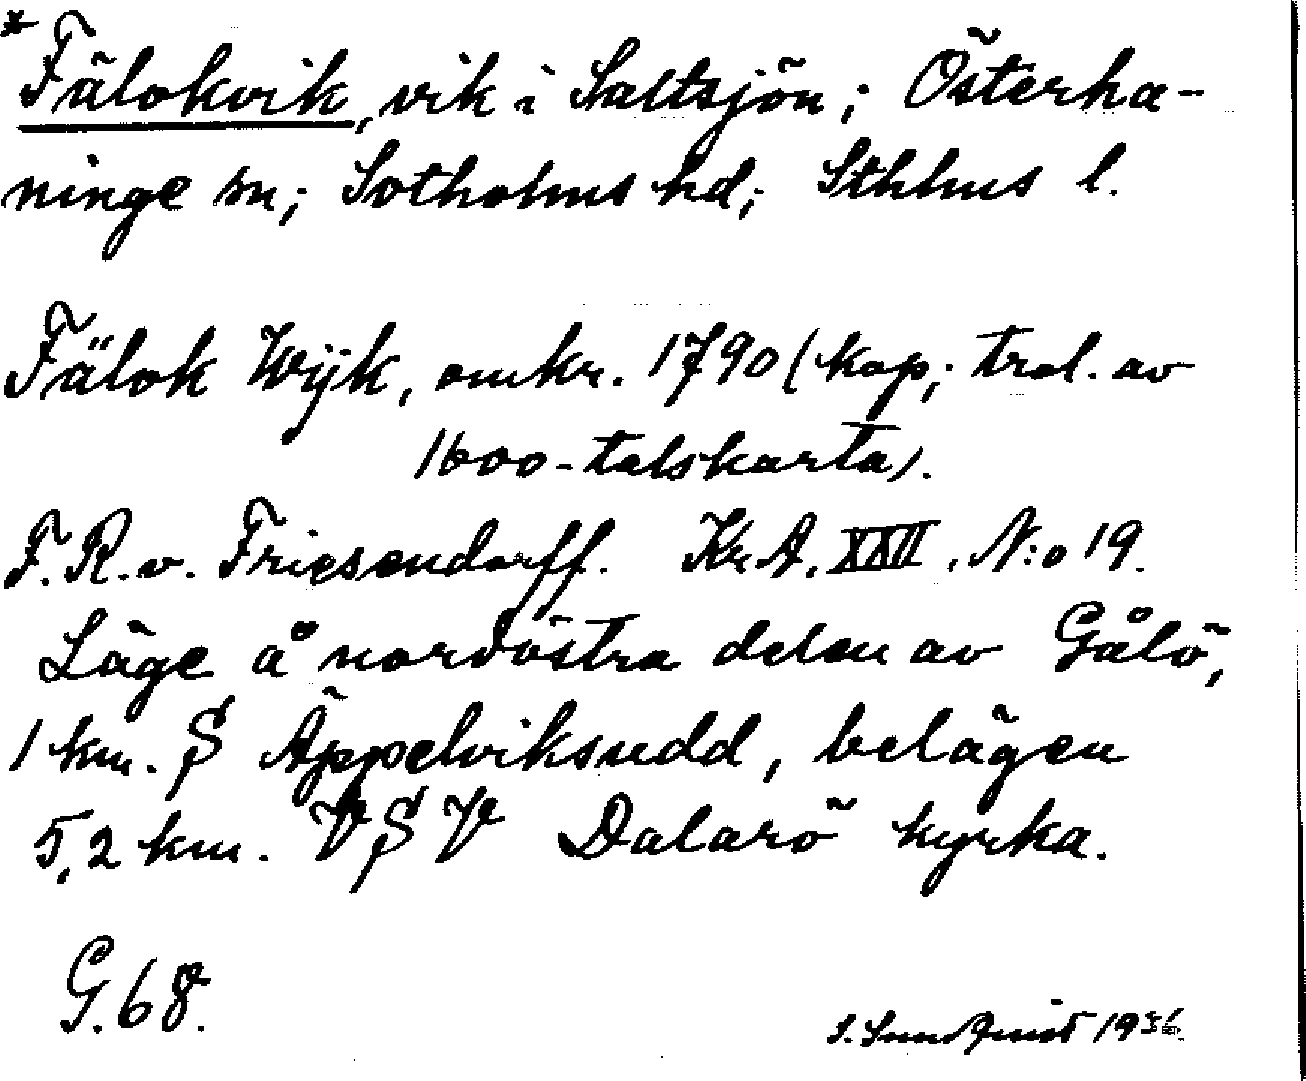 * Fälokvik, vik i Saltsjön; Österha-
ninge sn; Sotholms hd; Sthlms l.
Fälok Wijk, omkr. 1790 (kop; trol. av
1600-talskarta).
F. R. v. Friesendorff. Kr. A. XXII. N:o 19.
Läge å nordöstra delen av Gålö,
1 km. S Äppelviksudd, belägen
5,2 km. VSV Dalarö kyrka.
G. 68.
S. Sundquist 1936